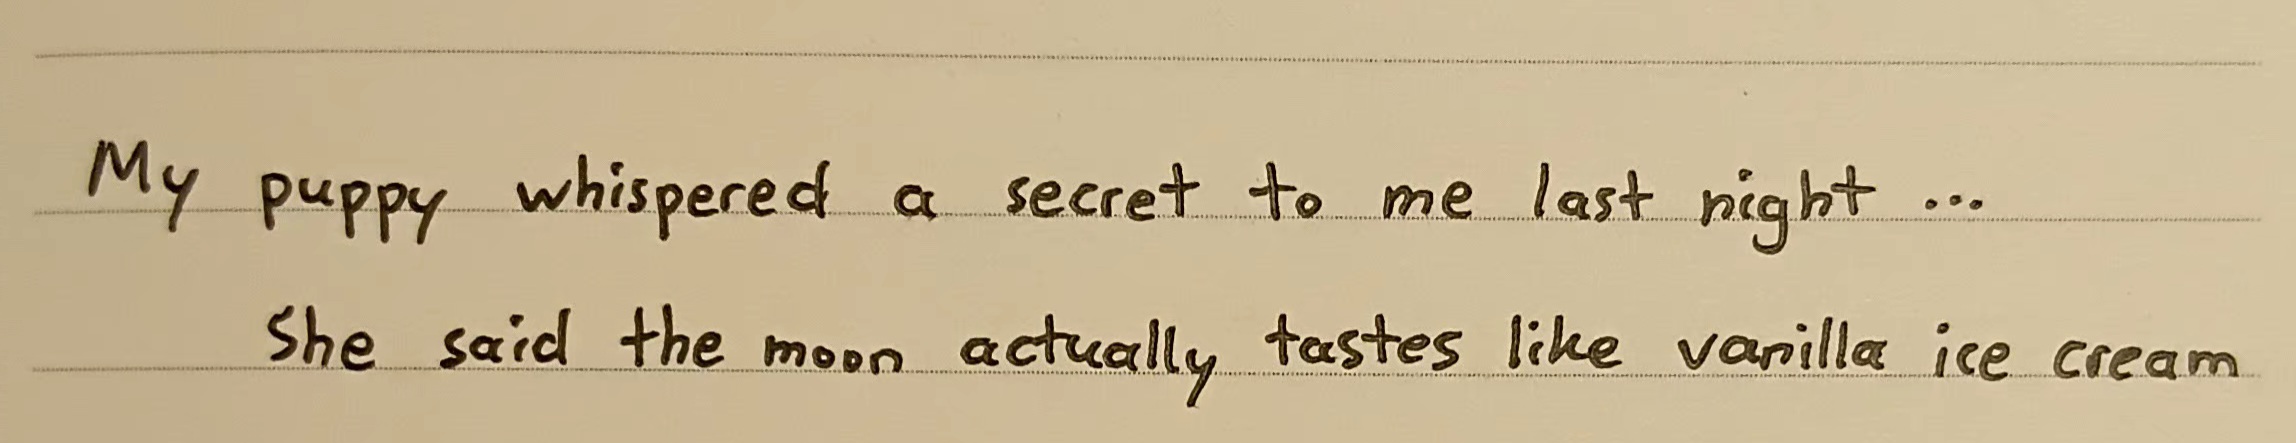 My puppy whispered a secret to me last night ...
She said the moon actually tastes like vanilla ice cream